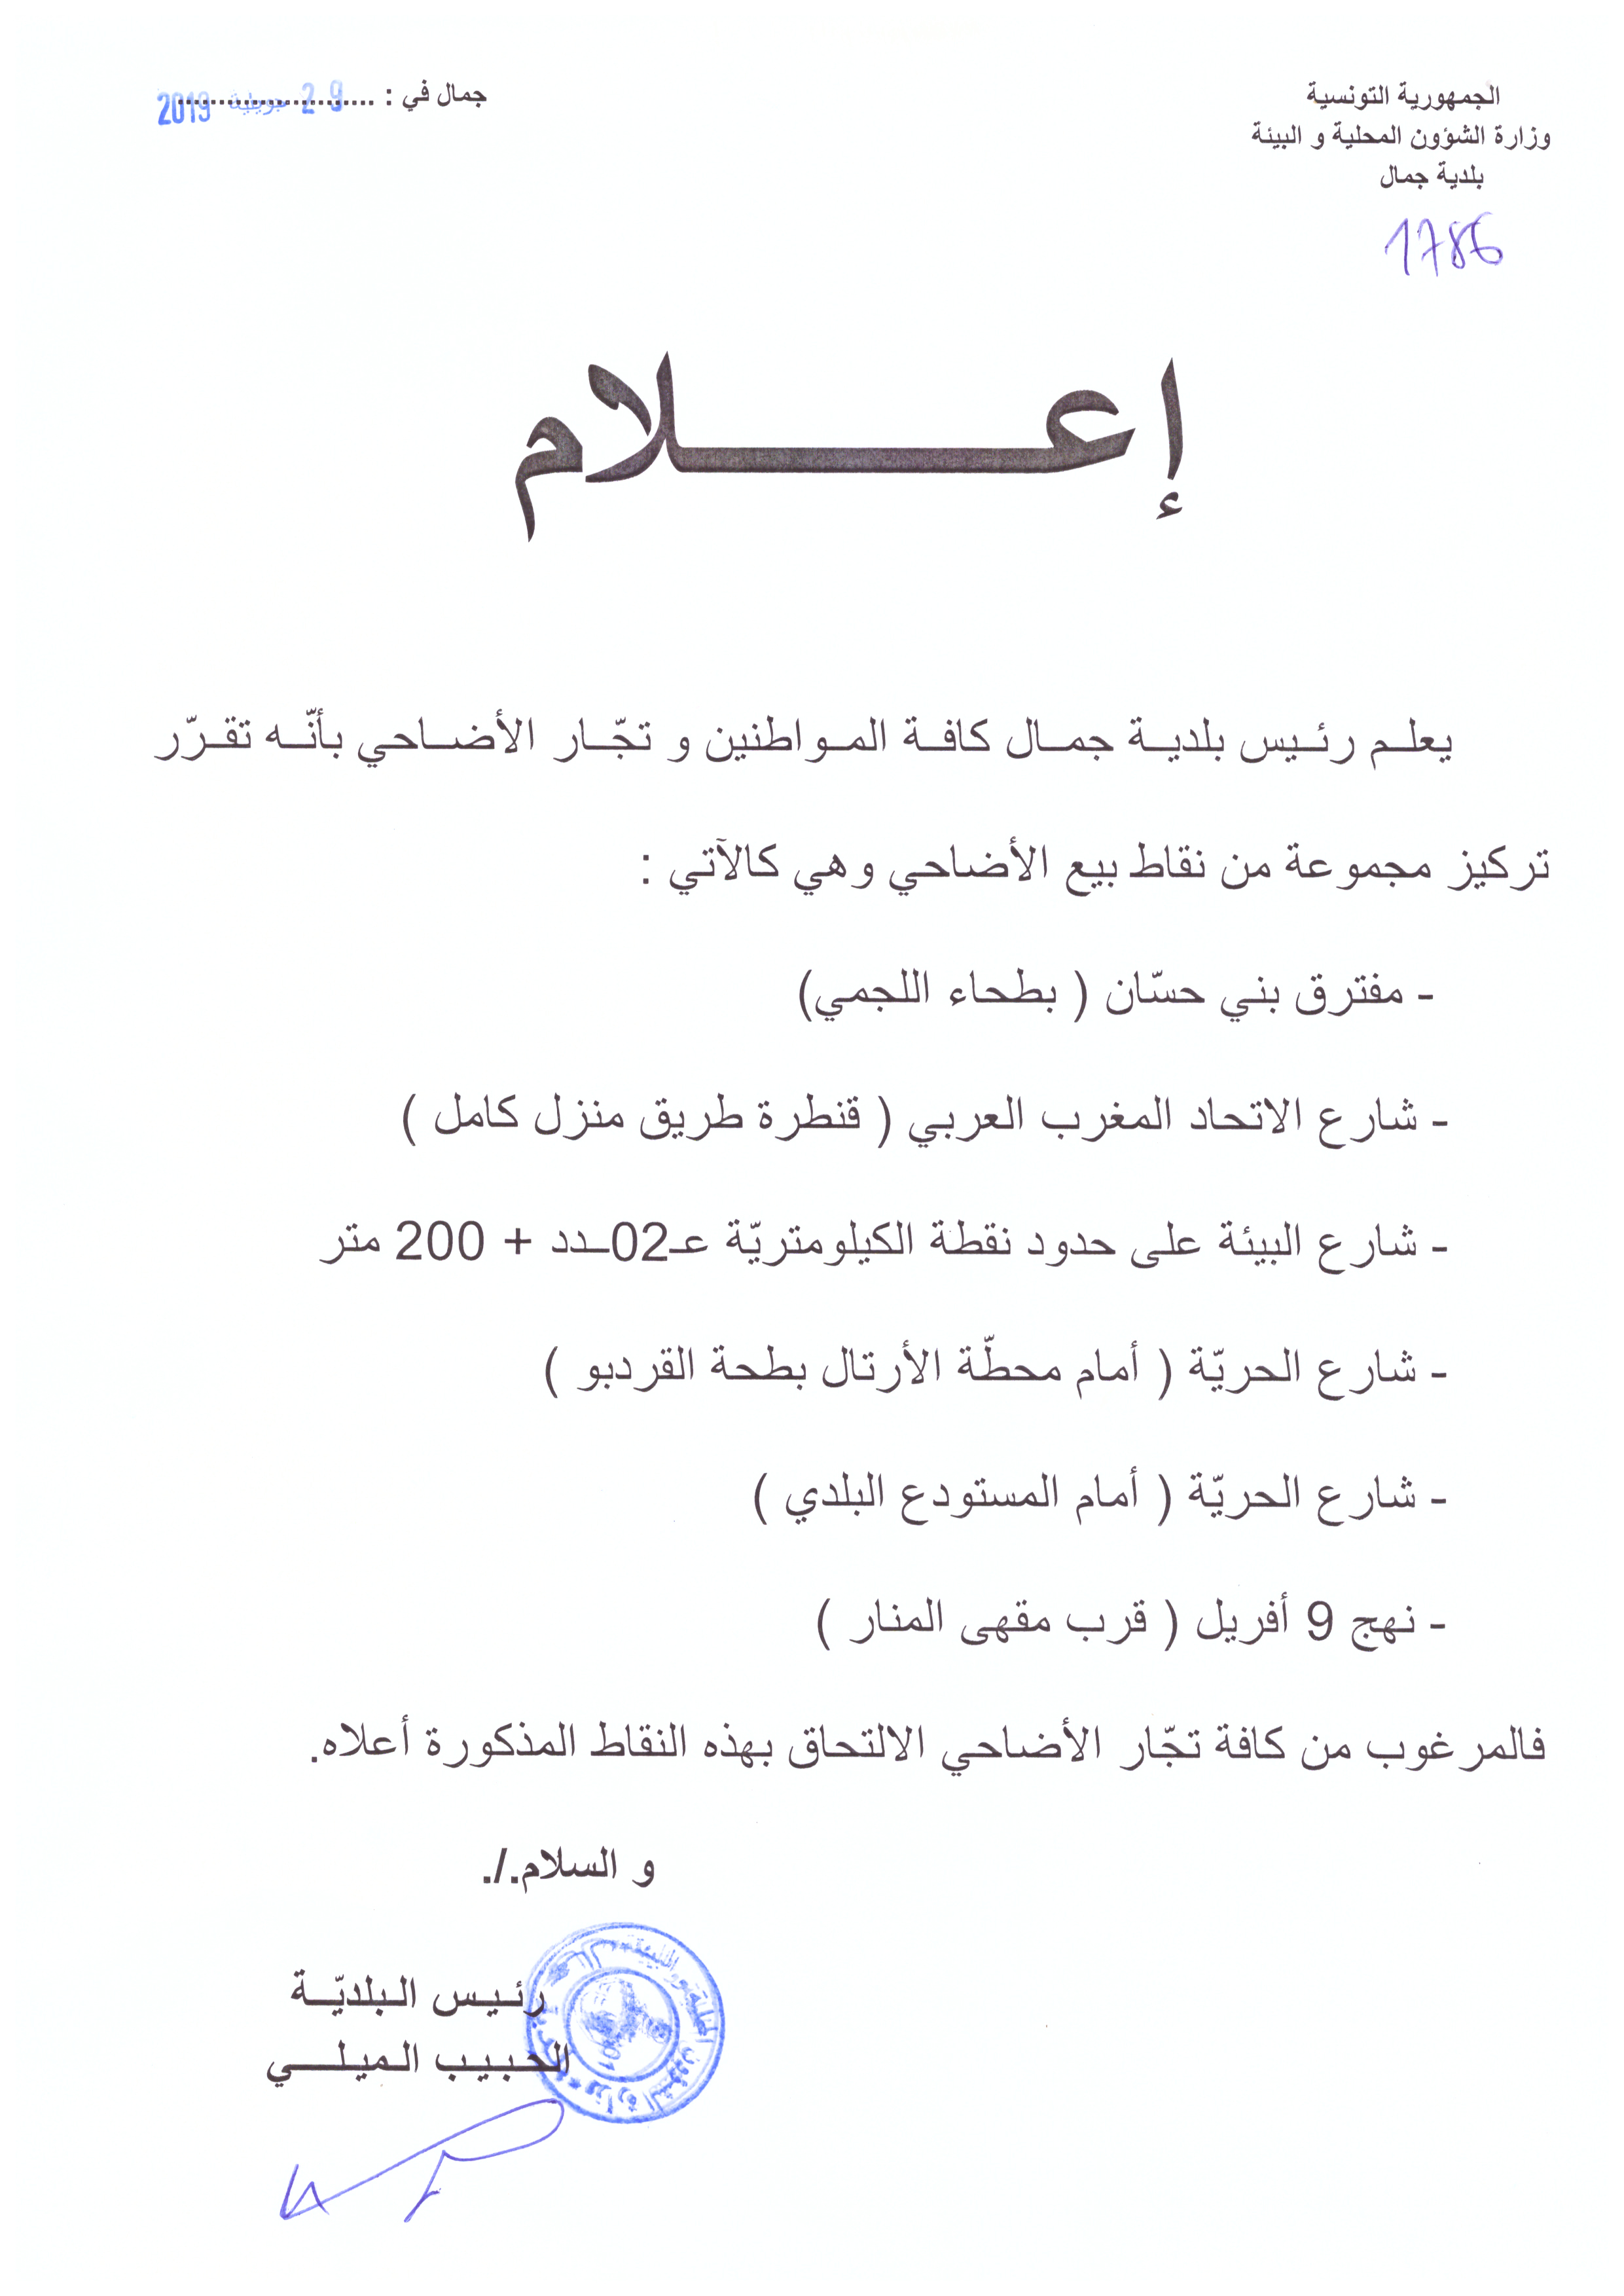 الجمهورية التونسية
وزارة الشؤون المحلية و البيئة
بلدية جمال
1786
جمال في : ........................ 29 جويلية 2019
إعـــــــلام
يعلـم رئـيس بلديــة جمــال كافــة المـواطنين و تجّــار الأضــاحي بأنّــه تقــرّر
تركيز مجموعة من نقاط بيع الأضاحي وهي كالآتي :
- مفترق بني حسّان ( بطحاء اللجمي)
- شارع الاتحاد المغرب العربي ( قنطرة طريق منزل كامل )
- شارع البيئة على حدود نقطة الكيلومتريّة عـ02ــدد + 200 متر
- شارع الحريّة ( أمام محطّة الأرتال بطحة القردبو )
- شارع الحريّة ( أمام المستودع البلدي )
- نهج 9 أفريل ( قرب مقهى المنار )
فالمرغوب من كافة تجّار الأضاحي الالتحاق بهذه النقاط المذكورة أعلاه.
و السلام./.
رئـيـس الـبلديّـــة
الحـبـيـب الـميـلــــي